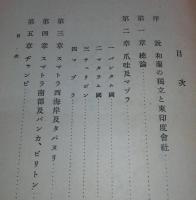 目次
序説 和蘭の獨立と東印度會社
第一章 總論
第二章 爪哇及マヅラ
一 バンタム國
二 マタラム國
三 チェリボン
四 マヅラ
第三章 スマトラ西海岸及タパヌリ
第四章 スマトラ南部及バンカ、ビリトン
第五章 ヂャンビ
目次